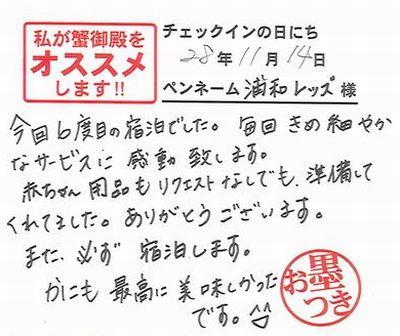 私が蟹御殿を
オススメ
します!!
チェックインの日にち
28年11月14日
ペンネーム 浦和レッズ 様
今回6度目の宿泊でした。毎回きめ細やか
なサービスに感動致します。
赤ちゃん用品もリクエストなしでも、準備して
くれてました。ありがとうございます。
また、必ず宿泊します。
かにも最高に美味しかった
です。
お墨つき